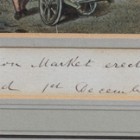 Market erect
1st Decemb